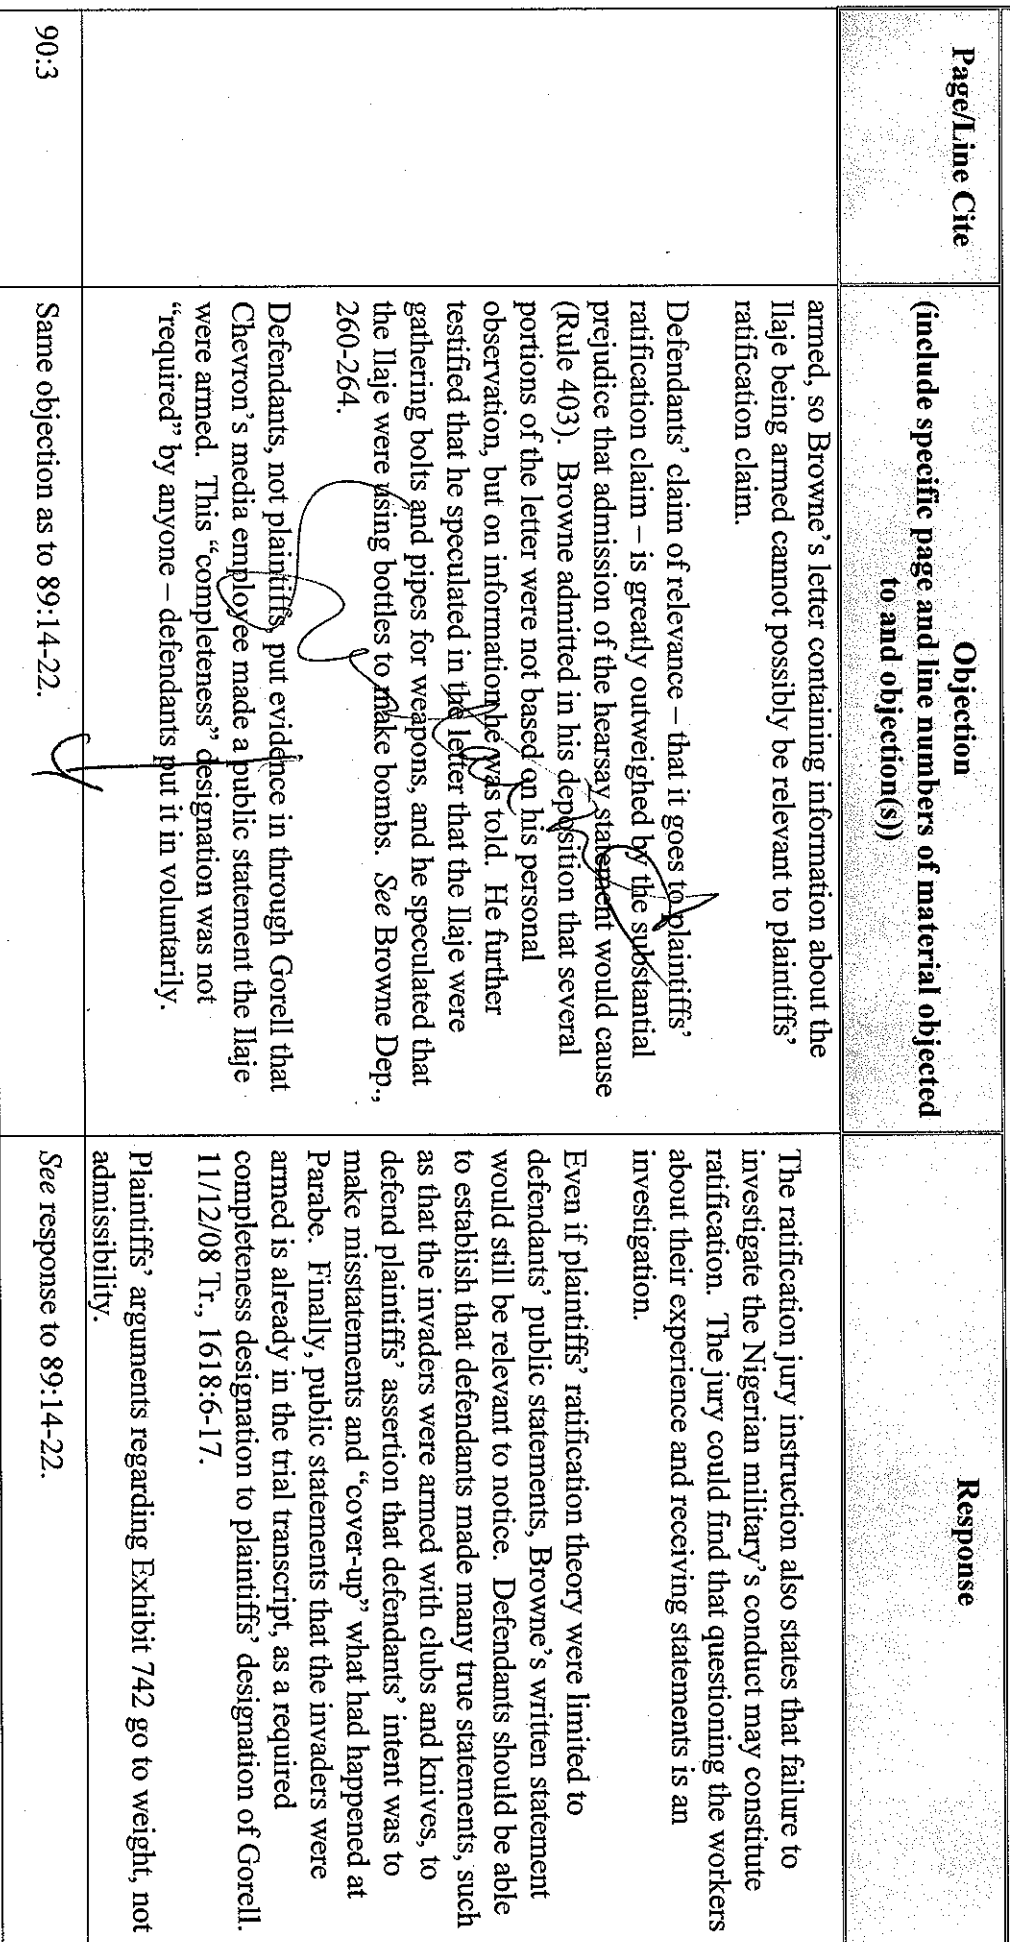 Page/Line Cite
Objection
(include specific page and line numbers of material objected
to and objection(s))
Response
armed, so Browne's letter containing information about the
Ilaje being armed cannot possibly be relevant to plaintiffs'
ratification claim.
Defendants' claim of relevance – that it goes to plaintiffs'
ratification claim – is greatly outweighed by the substantial
prejudice that admission of the hearsay statement would cause
(Rule 403). Browne admitted in his deposition that several
portions of the letter were not based on his personal
observation, but on information he was told. He further
testified that he speculated in the letter that the Ilaje were
gathering bolts and pipes for weapons, and he speculated that
the Ilaje were using bottles to make bombs. See Browne Dep.,
260-264.
Defendants, not plaintiffs, put evidence in through Gorell that
Chevron's media employee made a public statement the Ilaje
were armed. This "completeness" designation was not
"required" by anyone – defendants put it in voluntarily.
The ratification jury instruction also states that failure to
investigate the Nigerian military's conduct may constitute
ratification. The jury could find that questioning the workers
about their experience and receiving statements is an
investigation.
Even if plaintiffs' ratification theory were limited to
defendants' public statements, Browne's written statement
would still be relevant to notice. Defendants should be able
to establish that defendants made many true statements, such
as that the invaders were armed with clubs and knives, to
defend plaintiffs' assertion that defendants' intent was to
make misstatements and "cover-up" what had happened at
Parabe. Finally, public statements that the invaders were
armed is already in the trial transcript, as a required
completeness designation to plaintiffs' designation of Gorell.
11/12/08 Tr., 1618:6-17.
Plaintiffs' arguments regarding Exhibit 742 go to weight, not
admissibility.
90:3
Same objection as to 89:14-22.
See response to 89:14-22.